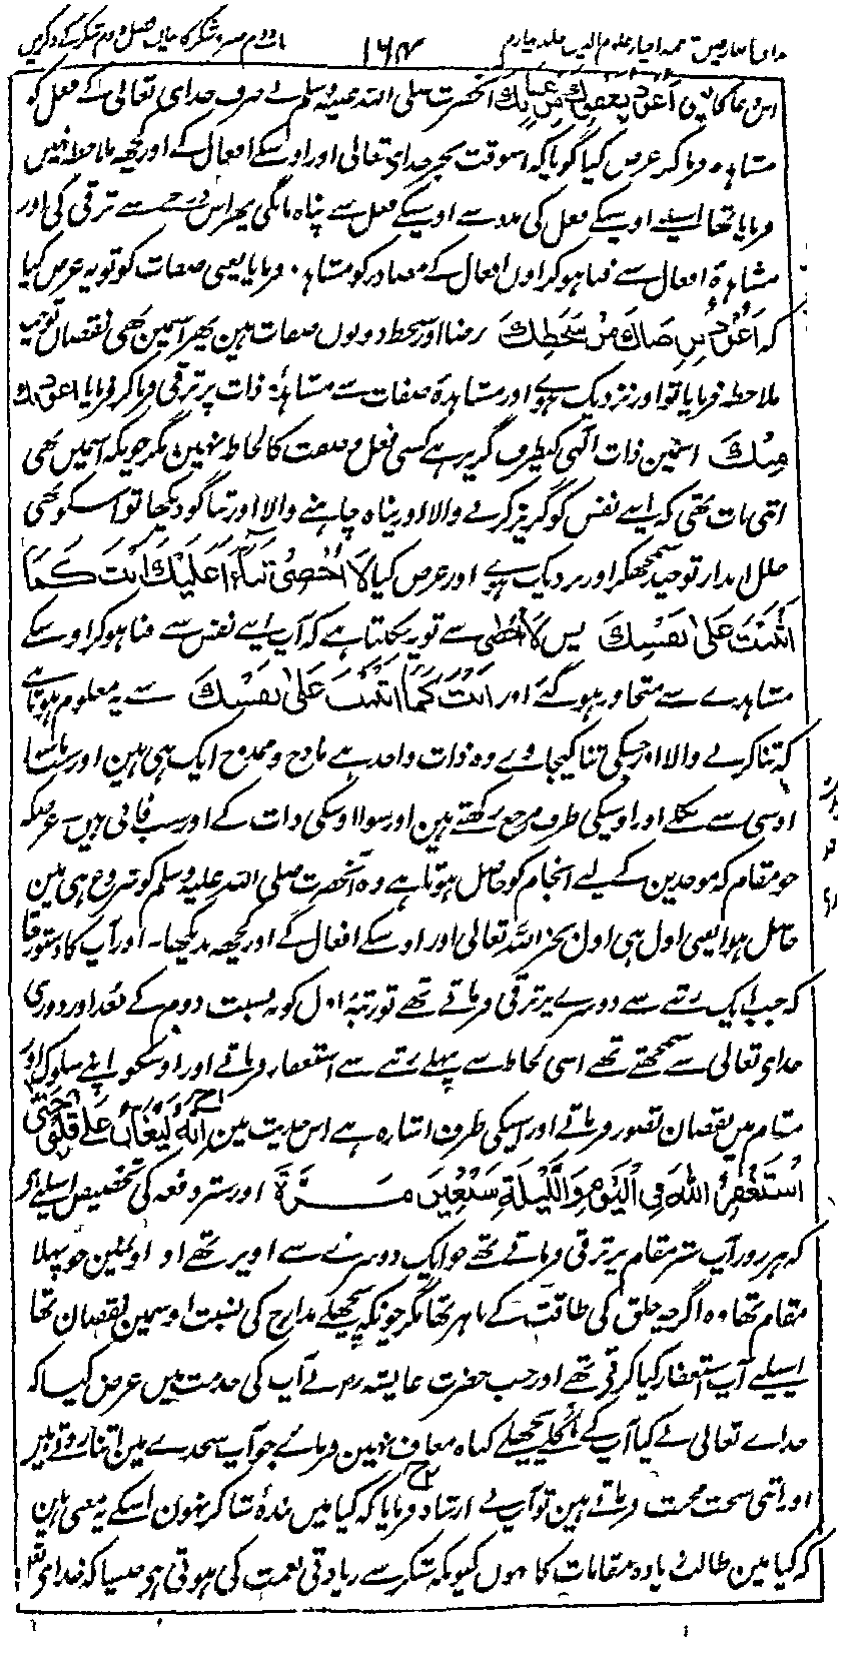 مذاق العارفین ترجمہ احیاء علوم الدین جلد چہارم ۱۶۴ باب دوم صبر و شکر کا بیان فصل دوم شکر کے ذکر میں
اس دعا کا پس اَعُوْذُ بِعَفْوِكَ مِنْ عِقَابِكَ آنحضرت صلی اللہ علیہ وسلم نے صرف خدای تعالی کے فعل کو
مشاہدہ فرما کر عرض کیا گویا کہ اسوقت بجز خدای تعالی اور اوسکے افعال کے اور کچھ ملاحظہ نہیں
فرمایا تھا اسلیے اوسیکے فعل کی مدد سے اوسیکے فعل سے پناہ مانگی پھر اس درجے سے ترقی کی اور
مشاہدۂ افعال سے فنا ہوکر اون افعال کے مصادر کو مشاہدہ فرمایا یعنی صفات کو تو یہ عرض کیا
کہ اَعُوْذُ بِرِضَاكَ مِنْ سَخَطِكَ رضا اور سخط دونوں صفات ہین پھر اسمین بھی نقصان توحید
ملاحظہ فرمایا تو اور نزدیک ہوے اور مشاہدۂ صفات سے مشاہدۂ ذات پر ترقی فرما کر فرمایا اعوذ بك
مِنْكَ اسمین ذات الہی کیطرف گریز ہے کسی فعل و صفت کا لحاظ نہین مگر چونکہ اسمیں بھی
اتنی بات تھی کہ اپنے نفس کو گریز کرنے والا اور پناہ چاہنے والا اور ثنا گو دیکھا تو اسکو بھی
خلل انداز توحید سمجھکر اور نزدیک ہوے اور عرض کیا لَا اُحْصِیْ ثَنَاءً عَلَیْكَ اَنْتَ كَمَا
اَثْنَیْتَ عَلٰی نَفْسِكَ پس لَا اُحْصِی سے تو یہ نکلتا ہے کہ آپ اپنے نفس سے فنا ہوکر اوسکے
مشاہدے سے متجاوز ہوگئے اور اَنْتَ كَمَا اَثْنَیْتَ عَلٰی نَفْسِكَ سے یہ معلوم ہوتا ہے
کہ ثنا کرنے والا اور جسکی ثنا کیجاوے وہ ذات واحد ہے مادح و ممدوح ایک ہی ہین اور سب اشیا
اوسی سے نکلے اور اوسیکی طرف مرجع رکھتے ہین اور سوا اوسکی ذات کے اور سب فانی ہیں۔ غرضکہ
جو مقام کہ موحدین کے لیے انجام کو حاصل ہوتا ہے وہ آنحضرت صلی اللہ علیہ وسلم کو شروع ہی مین
حاصل ہوا یعنی اول ہی اول بجز اللہ تعالی اور اوسکے افعال کے اور کچھ ندیکھا۔ اور آپ کا دستور تھا
کہ جب ایک رتبے سے دوسرے پر ترقی فرماتے تھے تو رتبۂ اول کو بہ نسبت دوم کے بُعد اور دوری
خدای تعالی سے سمجھتے تھے اسی لحاظ سے پہلے رتبے سے استغفار فرماتے اور اوسکو اپنے سلوک اور
مقام میں نقصان تصور فرماتے اور اسیکی طرف اشارہ ہے اس حدیث مین اِنَّهُ لَیُغَانُ عَلٰی قَلْبِیْ حَتّٰی
اَسْتَغْفِرُ اللّٰهَ فِی الْیَوْمِ وَاللَّیْلَةِ سَبْعِیْنَ مَرَّةً اور ستر دفعہ کی تخصیص اسلیے ہے
کہ ہر روز آپ ستر مقام پر ترقی فرماتے تھے جو ایک دوسرے سے اوپر تھے اور اونمین جو پہلا
مقام تھا وہ اگرچہ خلق کی طاقت کے باہر تھا مگر چونکہ پچھلے مدارج کی نسبت اوسمین نقصان تھا
اسلیے آپ استغفار کیا کرتے تھے اور جب حضرت عایشہ رض نے آپ کی خدمت میں عرض کیا کہ
خداے تعالی نے کیا آپ کے اگلے پچھلے گناہ معاف نہین فرمائے جو آپ سجدے مین اتنا روتے ہین
اور اتنی سخت محنت فرماتے ہین تو آپ نے ارشاد فرمایا کہ کیا میں بندۂ شاکر نہون اسکے یہ معنی ہین
کہ کیا مین طالب زیادہ مقامات کا نہوں کیونکہ شکر سے زیادتی نعمت کی ہوتی ہے جیسا کہ خدای تعالی